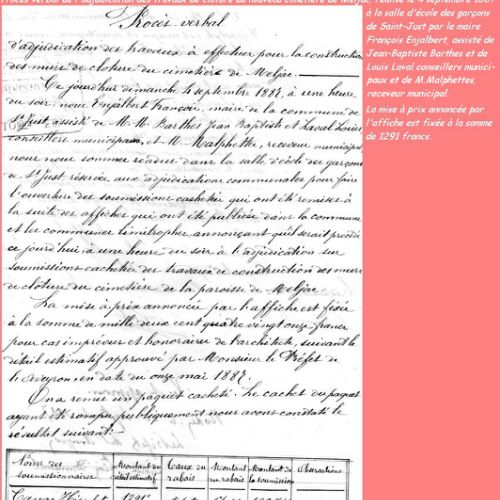 Procès verbal de l'adjudication des travaux de clôture du nouveau cimetière de Meljac, réalisé le 4 septembre 1887
à la salle d'école des garçons
de Saint-Just par le maire
François Enjalbert, assisté de
Jean-Baptiste Barthes et de
Louis Laval conseillers munici-
paux et de M.Malphettes,
receveur municipal.
La mise à prix annoncée par
l'affiche est fixée à la somme
de 1291 francs.
Procès verbal
d'adjudication des travaux à effectuer pour la construction
des murs de clôture du cimetière de Meljac.
Ce jourd'hui dimanche 4 septembre 1887, à une heure
du soir, nous Enjalbert François, maire de la commune de
St Just, assisté de M. M. Barthes Jean Baptiste et Laval Louis
conseillers municipaux, et M. Malphettes, receveur municipal
nous nous sommes rendus dans la salle d'école des garçons
de St Just réservée aux adjudications communales pour faire
l'ouverture des soumissions cachetées qui ont été remises à
la suite des affiches qui ont été publiées dans la commune
et les communes limitrophes, annonçant qu'il serait procédé
ce jourd'hui à une heure du soir à l'adjudication sur
soumissions cachetées des travaux de construction des murs
de clôture du cimetière de la paroisse de Meljac.
La mise à prix annoncée par l'affiche est fixée
à la somme de mille deux cent quatre vingt onze francs
pour cas imprévus et honoraires de l'architecte, suivant le
détail estimatif approuvé par Monsieur le Préfet de
l'Aveyron en date du onze mai 1887.
On a remis un paquet cacheté. Le cachet du paquet
ayant été rompu publiquement nous avons constaté le
résultat suivant:
Noms des soumissionnaires
Montant du détail estimatif
Taux du rabais
Montant du rabais
Montant de la soumission
Observations
1291